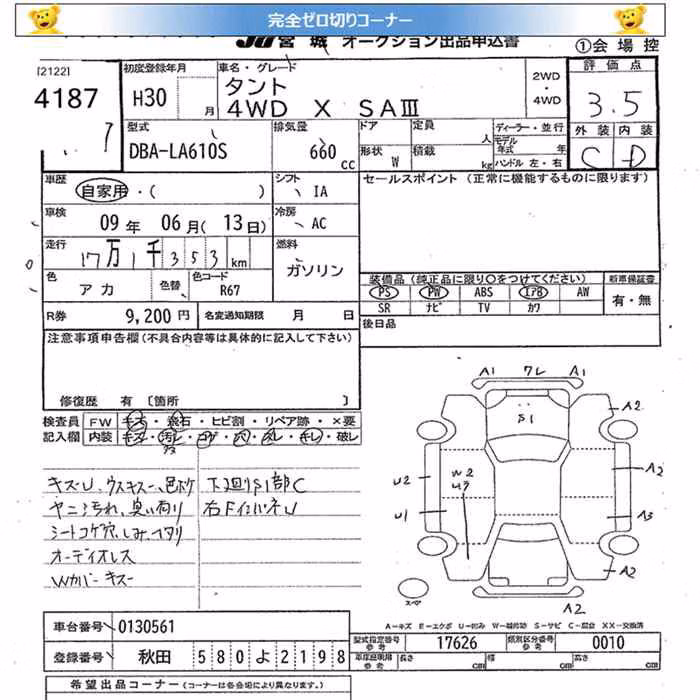 完全ゼロ切りコーナー
JU 宮城 オークション出品申込書
①会場控
[2122]
4187
初度登録年月
H30 月
車名・グレード
タント
4WD X SAⅢ
2WD
・
4WD
評価点
3.5
外装 内装
C D
型式
DBA-LA610S
排気量
660 cc
ドア
定員 人
ディーラー・並行
モデル年式 年
形状 W
積載 kg
ハンドル 左・右
車歴
自家用・( )
シフト
IA
セールスポイント (正常に機能するものに限ります)
車検
09年 06月(13日)
冷房
AC
走行
17万1千353km
燃料
ガソリン
色
アカ
色替
色コード
R67
装備品(純正品に限り○をつけてください)
新車保証書
PS PW ABS エアB AW
SR ナビ TV カワ
有・無
R券 9,200円
名変通知期限 月 日
後日品
注意事項申告欄(不具合内容等は具体的に記入して下さい)
修復歴 有〔箇所 〕
検査員 FW キズ・飛石・ヒビ割・リペア跡・×要
記入欄 内装 キズ・汚レ・コゲ・穴・スレ・キレ・破レ
キズU、ウスキズ、色ボケ
ヤニ汚れ、臭い有り
シートコゲ穴、しみ、ヘタリ
オーディオレス
Wカバーキズ
下廻りS1部C
A1 ワレ A1
S1
A2
U2
W2
U3
A2
U1
A3
A2
スペア
A2
A-キズ E-エクボ U-凹み W-補修跡 S-サビ C-腐食 XX-交換済
車台番号 0130561
型式指定番号 参考 17626
類別区分番号 参考 0010
登録番号 秋田 580 よ 2198
車庫証明用 参考 長さ cm 幅 cm 高さ cm
希望出品コーナー (コーナーは各会場により異なります。)